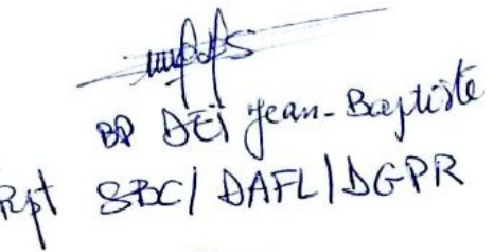 BP DEï Jean-Baptiste
Rpt SBC/ DAFL/DGPR